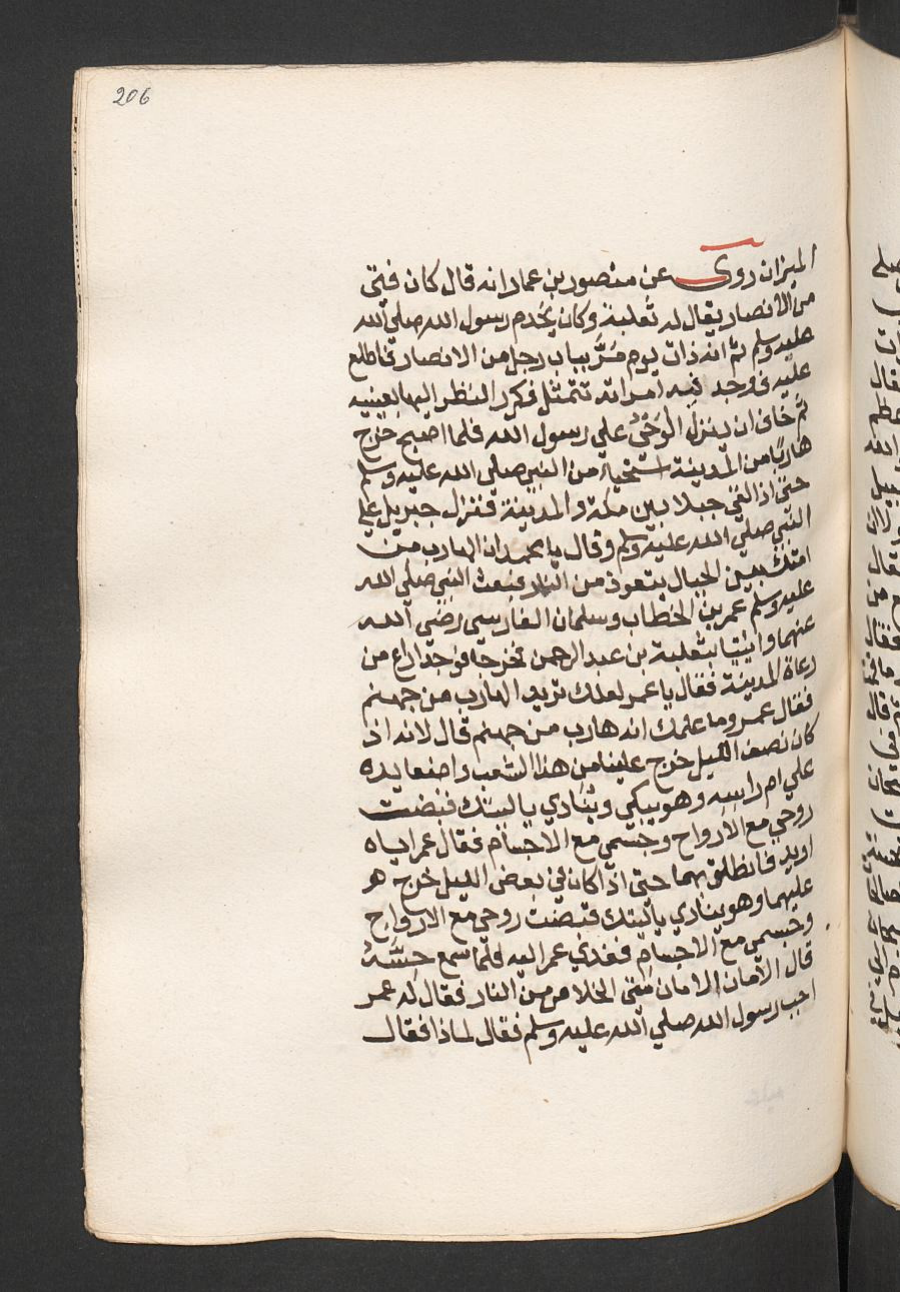 206
الميزان روى عن منصور بن عمار انه قال كان فتى
من الانصار يقال له ثعلبة وكان يخدم رسول الله صلي الله
عليه وسلم ثم انه ذات يوم مَرَّ بباب رجل من الانصار فاطلع
عليه فوجد فيه امراته تتمثل فكرر النظر اليها بعينيه
ثم خاف ان ينزل الوَحْيُ علي رسول الله فلما اصبح خرج
هاربًا من المدينة استحياءً من النبي صلي الله عليه وسلم
حتى اذ القي جبلا بين مكة والمدينة فنزل جبريل علي
النبي صلي الله عليه وسلم وقال يا محمد ان الهارب من
امتك بين الجبال يتعوذ من النار فبعث النبي صلي الله
عليه وسلم عمر بن الخطاب وسلمان الفارسي رضي الله
عنهما وأتيا بثعلبة بن عبد الرحمن فخرجا فوجدا راع من
رعاة المدينة فقال يا عمر لعلك تريد الهارب من جهنم
فقال عمر وما علمك انه هارب من جهنم قال لانه اذ
كان نصف الليل خرج علينا من هذا الشعب واضعا يده
علي ام راسه وهو يبكي وينادي ياليتك قبضت
روحي مع الارواح وجسمي مع الاجسام فقال عمر اياه
اريد فانطلق بهما حتى اذا كان في بعض الليل خرج هو
عليهما وهو ينادي ياليتك قبضت روحي مع الارواح
وجسمي مع الاجسام فغدي عمر اليه فلما سمع حِسَّهُ
قال الأمان الامان متى الخلاص من النار فقال له عمر
اجب رسول الله صلي الله عليه وسلم فقال لماذا فقال